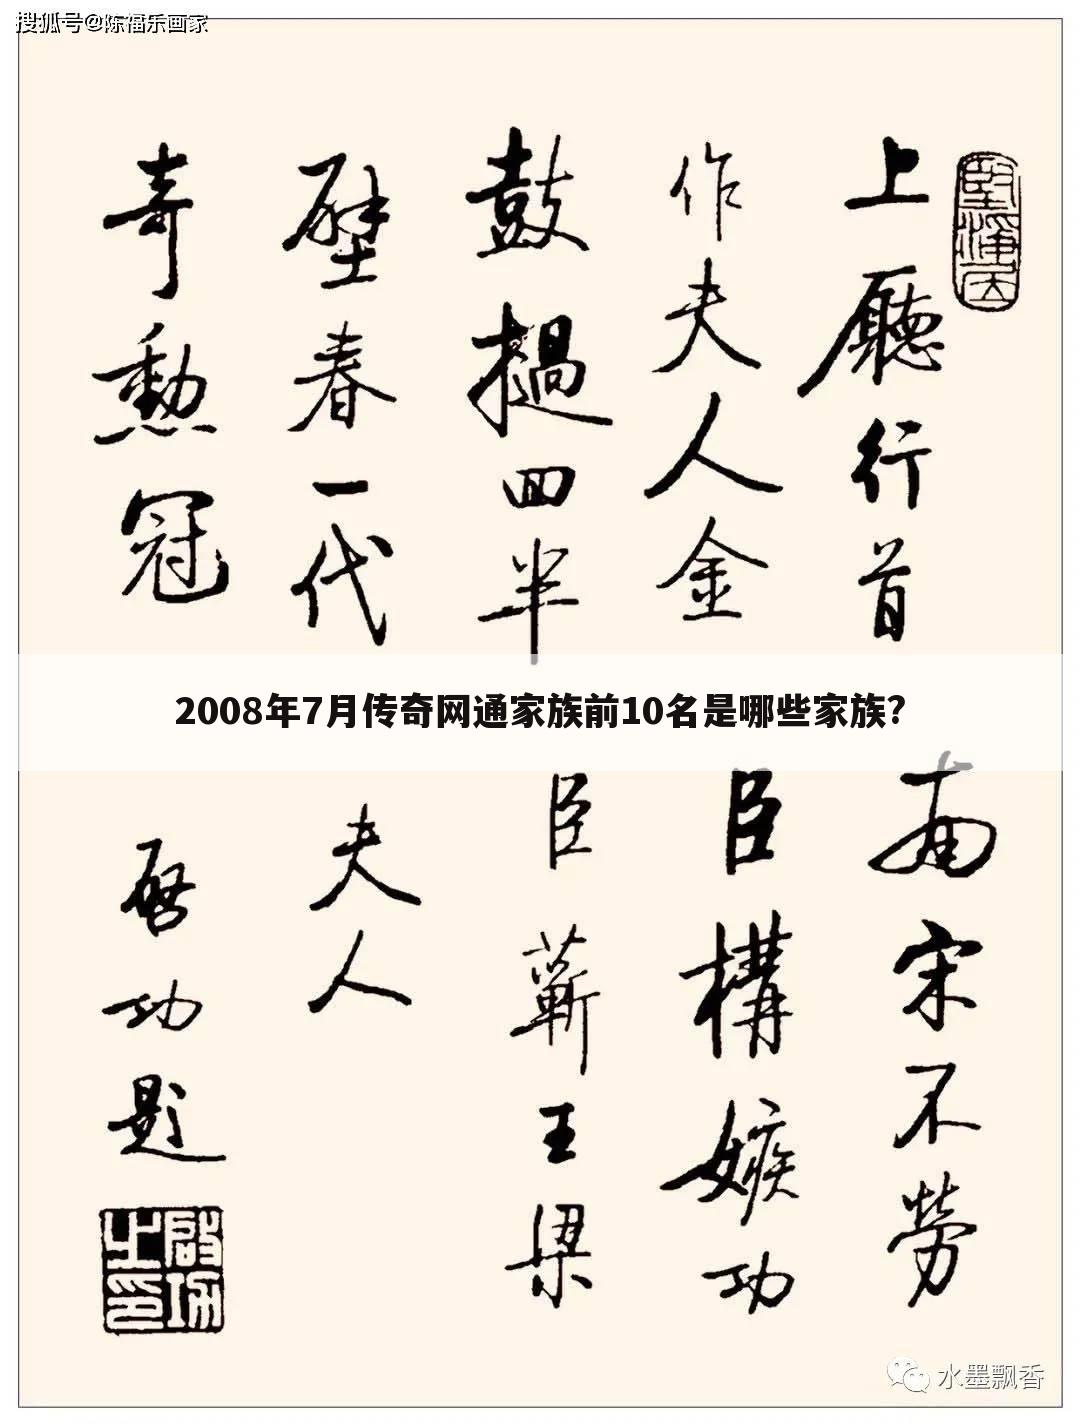 搜狐号@陈福乐画家
堅淨居
上廳行首
作夫人金
鼓撾回半
壁春一代
奇勳冠
2008年7月传奇网通家族前10名是哪些家族?
南宋不勞
臣構嫉功
臣蘄王梁
夫人
啓功題
啓功之印
水墨飘香